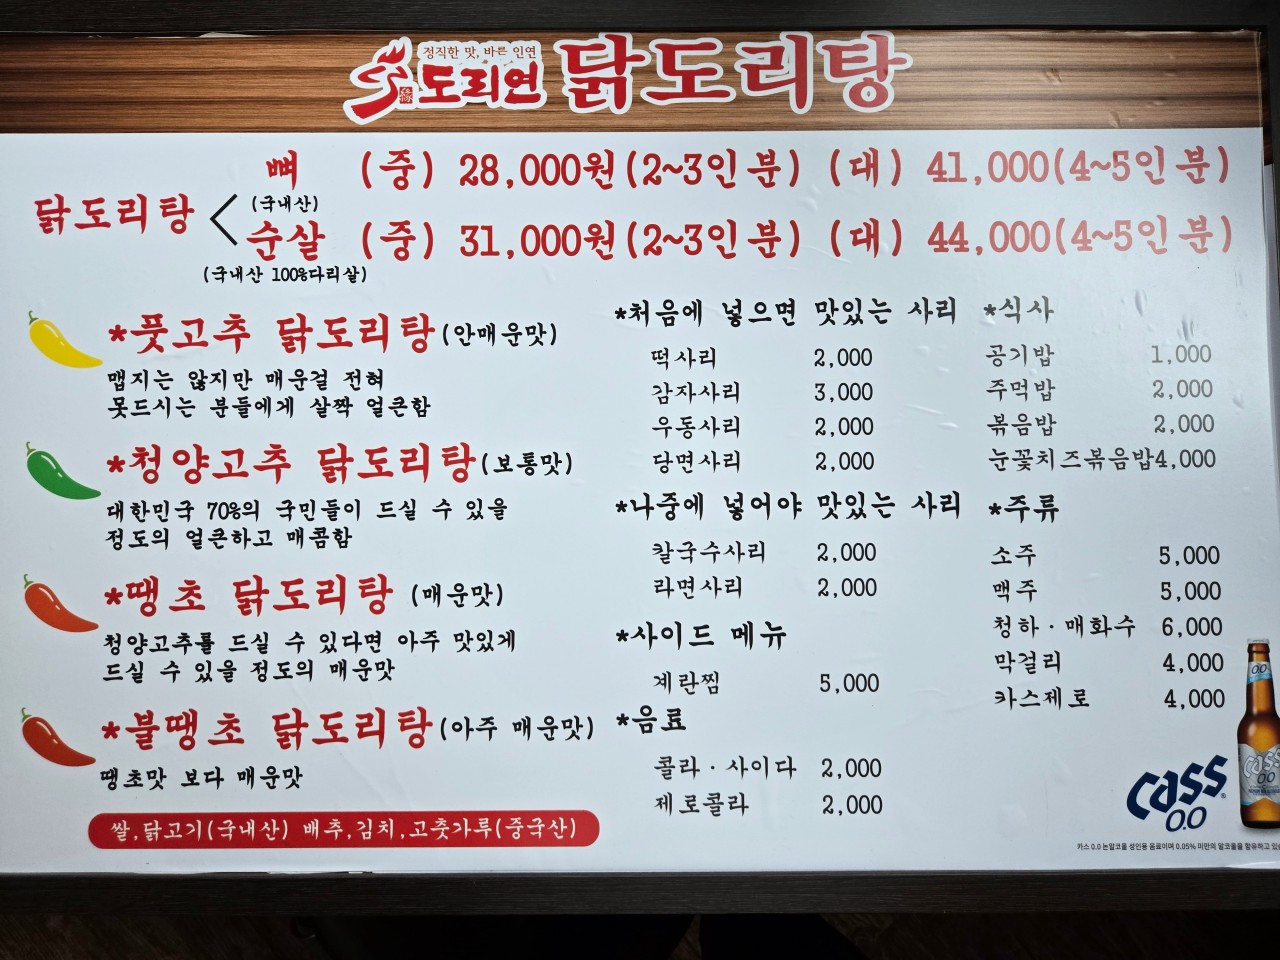 정직한 맛, 바른 인연
도리연 닭도리탕
닭도리탕
뼈 (중) 28,000원(2~3인분) (대) 41,000(4~5인분)
(국내산)
순살 (중) 31,000원(2~3인분) (대) 44,000(4~5인분)
(국내산 100%다리살)
*풋고추 닭도리탕(안매운맛)
맵지는 않지만 매운걸 전혀
못드시는 분들에게 살짝 얼큰함
*청양고추 닭도리탕(보통맛)
대한민국 70%의 국민들이 드실 수 있을
정도의 얼큰하고 매콤함
*땡초 닭도리탕 (매운맛)
청양고추를 드실 수 있다면 아주 맛있게
드실 수 있을 정도의 매운맛
*불땡초 닭도리탕(아주 매운맛)
땡초맛 보다 매운맛
쌀,닭고기(국내산) 배추,김치,고춧가루(중국산)
*처음에 넣으면 맛있는 사리
떡사리 2,000
감자사리 3,000
우동사리 2,000
당면사리 2,000
*나중에 넣어야 맛있는 사리
칼국수사리 2,000
라면사리 2,000
*사이드 메뉴
계란찜 5,000
*음료
콜라·사이다 2,000
제로콜라 2,000
*식사
공기밥 1,000
주먹밥 2,000
볶음밥 2,000
눈꽃치즈볶음밥4,000
*주류
소주 5,000
맥주 5,000
청하·매화수 6,000
막걸리 4,000
카스제로 4,000
Cass
0.0
카스 0.0 논알코올 성인용 음료이며 0.05% 미만의 알코올을 함유하고